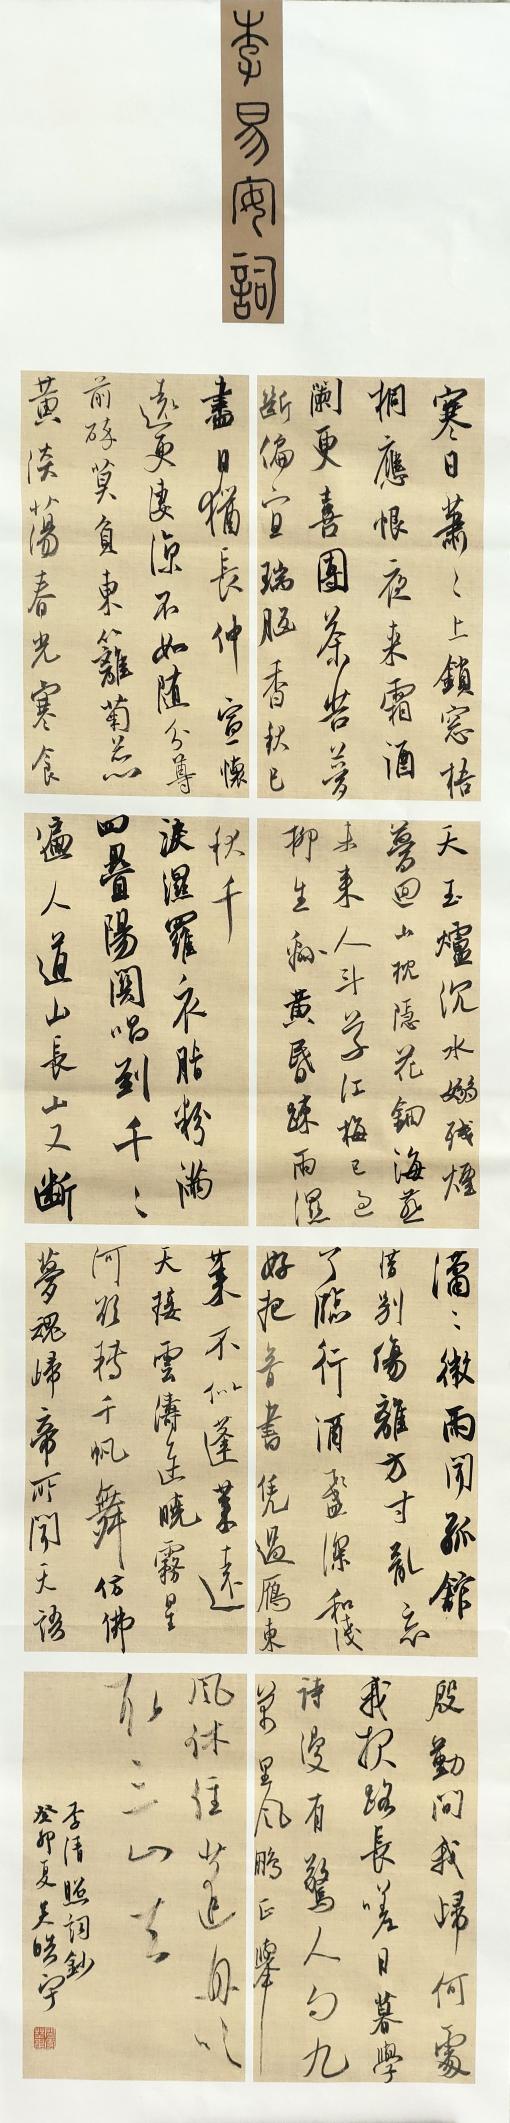 李易安詞
寒日蕭〻上鎖窓梧
桐應恨夜来霜酒
闌更喜團茶苦夢
斷偏宜瑞腦香秋已
盡日猶長仲宣懷
遠更凄涼不如随分尊
前醉莫負東籬菊蕊
黄淡蕩春光寒食
天玉爐沉水嫋残煙
夢迴山枕隱花鈿海燕
未来人斗草江梅已過
柳生綿黄昏疎雨濕
秋千
淚濕羅衣脂粉滿
四疊陽關唱到千〻
遍人道山長山又斷
瀟〻微雨聞孤館
惜别傷離方寸亂忘
了臨行酒盞深和淺
好把音書凭過雁東
萊不似蓬萊遠
天接雲濤連曉霧星
河欲轉千帆舞仿佛
夢魂歸帝所聞天語
殷勤問我歸何處
我報路長嗟日暮學
詩漫有驚人句九
萬里風鵬正舉
風休住蓬舟吹
取三山去
李清照詞鈔
癸卯夏吳皓宇